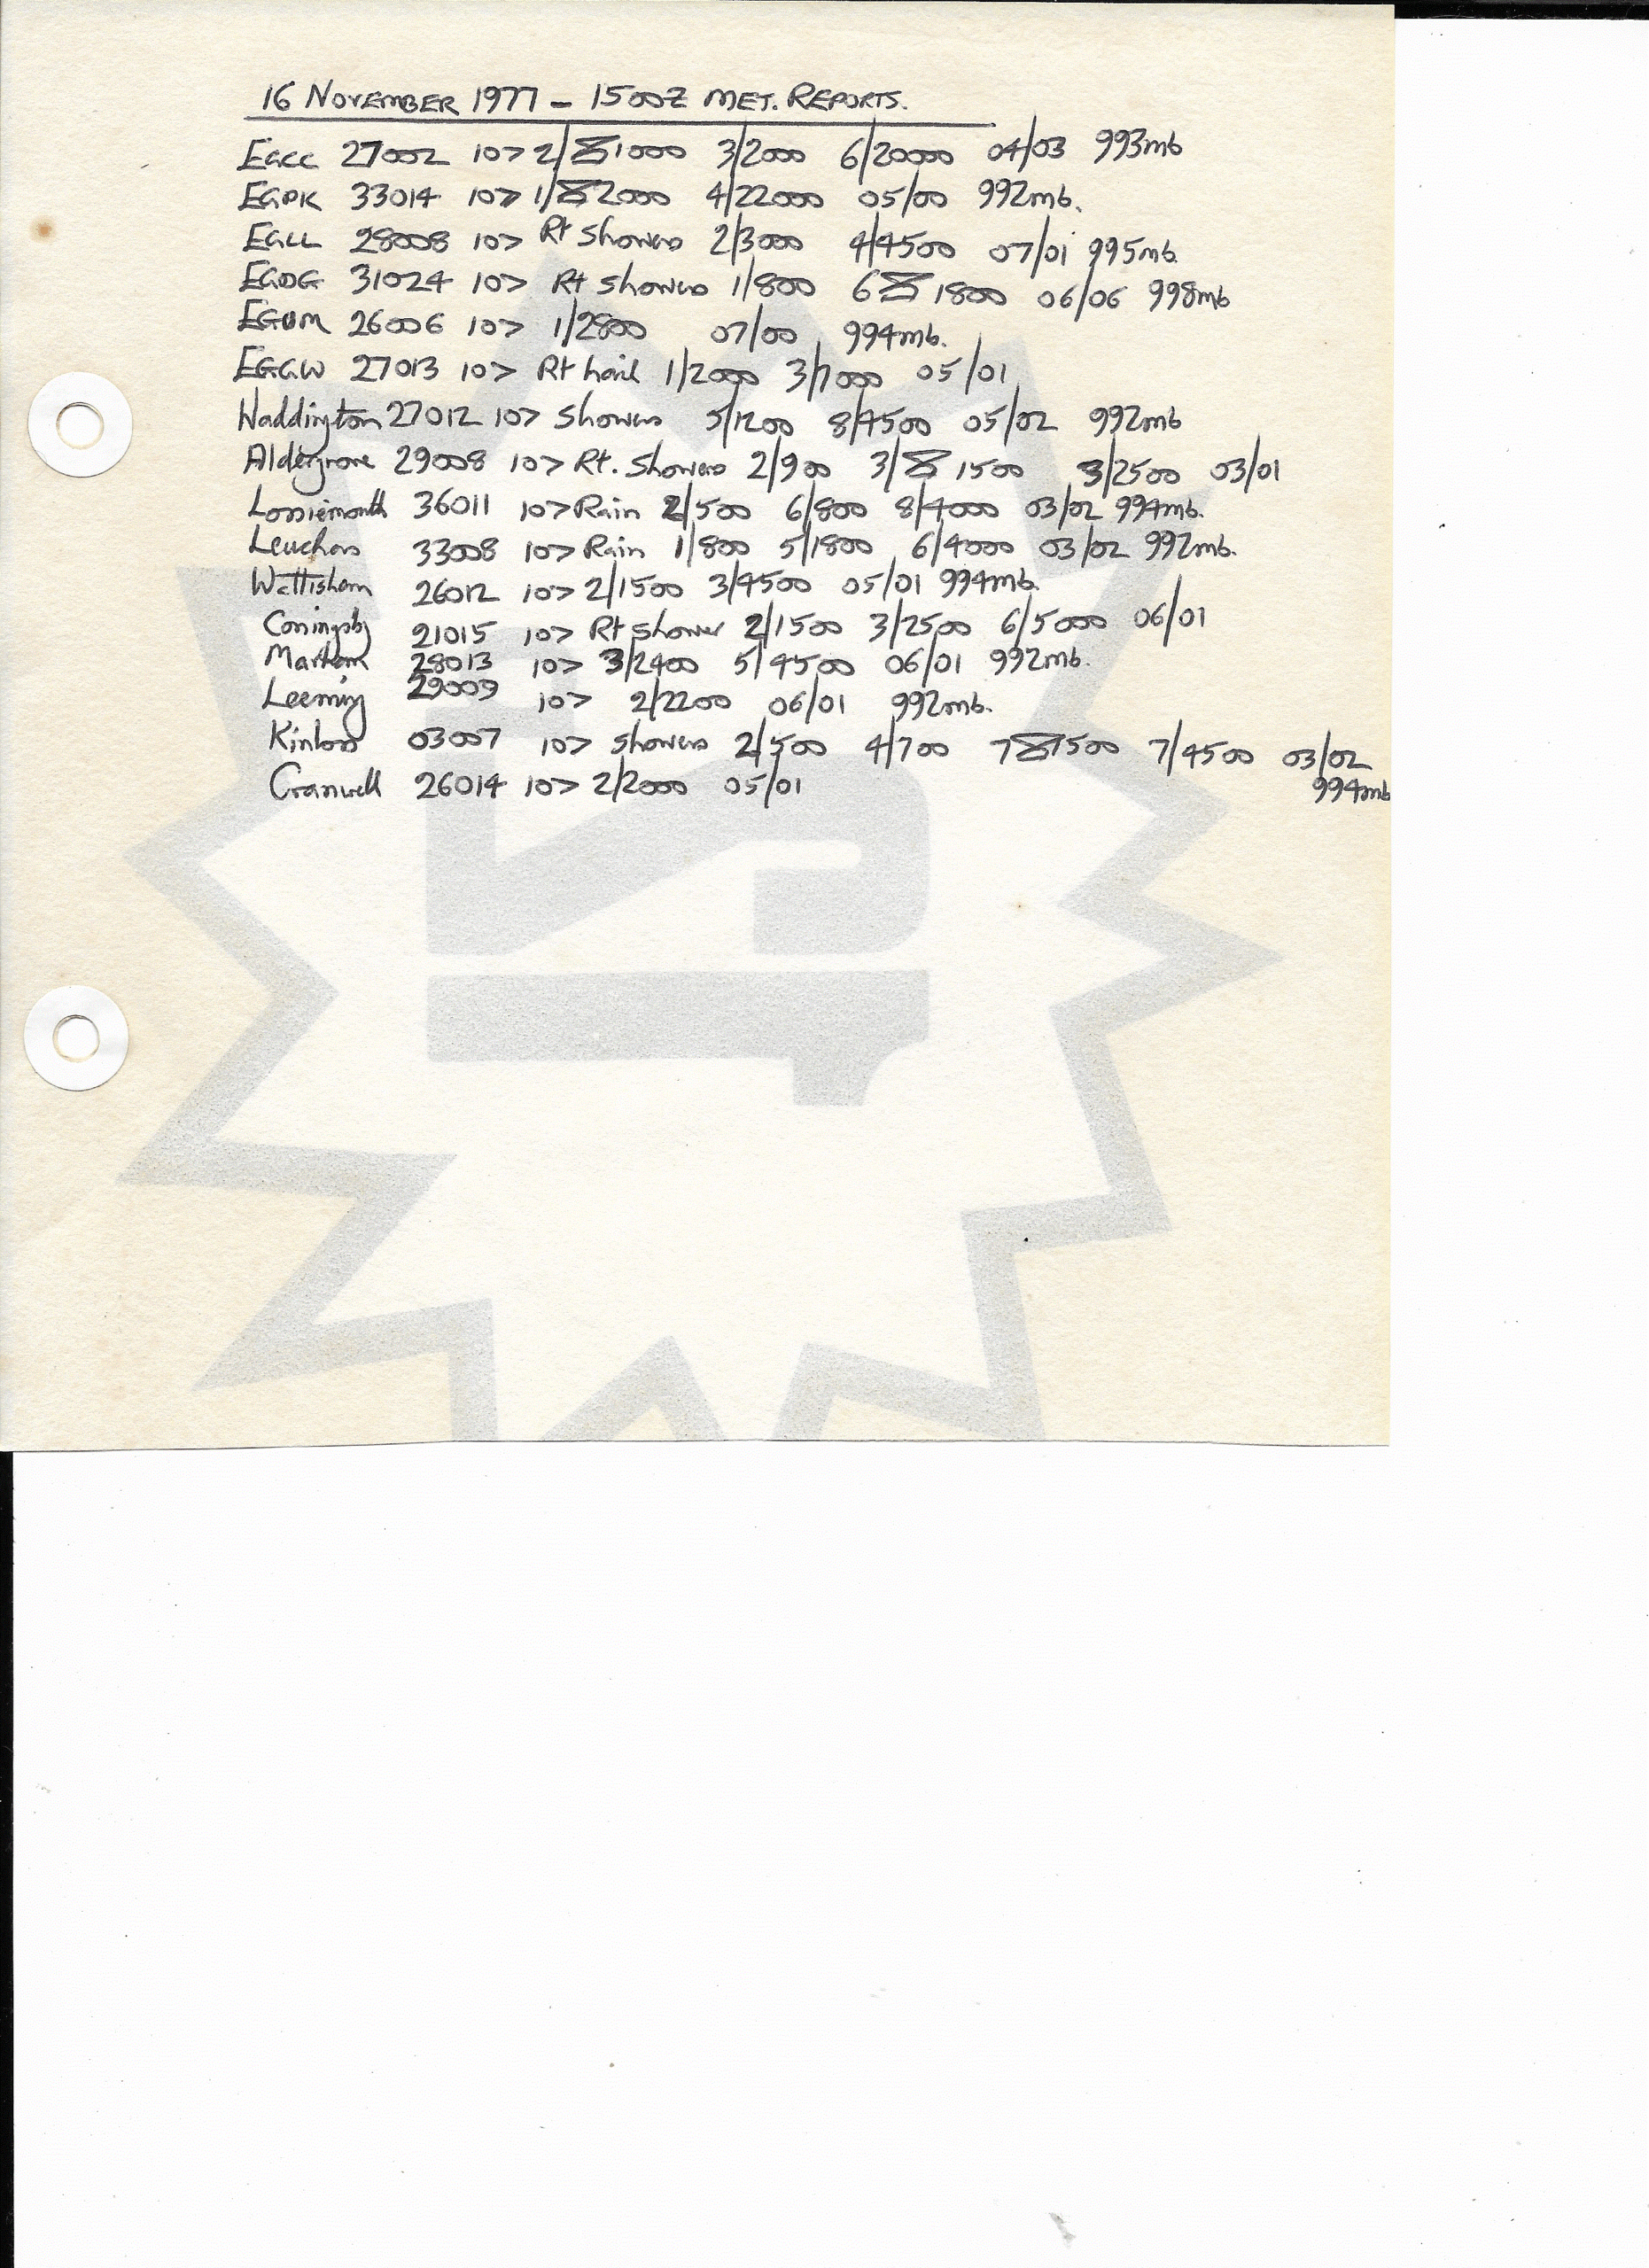 16 NOVEMBER 1977 - 1500Z MET. REPORTS.
EGCC 27002 10> 2/ 1000 3/2000 6/20000 04/03 993mb
EGPK 33014 10> 1/ 2000 4/22000 05/00 992mb.
EGLL 28008 10> Rt Showers 2/3000 4/4500 07/01 995mb
EGDG 31024 10> Rt showers 1/800 6 1800 06/06 998mb
EGUM 26006 10> 1/2800 07/00 994mb.
EGGW 27013 10> Rt hail 1/2000 3/7000 05/01
Waddington 27012 10> Showers 5/1200 8/4500 05/02 992mb
Aldergrove 29008 10> Rt. Showers 2/900 3/ 1500 3/2500 03/01
Lossiemouth 36011 10> Rain 2/500 6/800 8/4000 03/02 994mb.
Leuchars 33008 10> Rain 1/800 5/1800 6/4000 03/02 992mb.
Wattisham 26012 10> 2/1500 3/4500 05/01 994mb.
Coningsby 21015 10> Rt Shower 2/1500 3/2500 6/5000 06/01
Marham 28013 10> 3/2400 5/4500 06/01 992mb.
Leeming 29009 10> 2/2200 06/01 992mb.
Kinloss 03007 10> Showers 2/500 4/700 7 1500 7/4500 03/02
994mb
Cranwell 26014 10> 2/2000 05/01